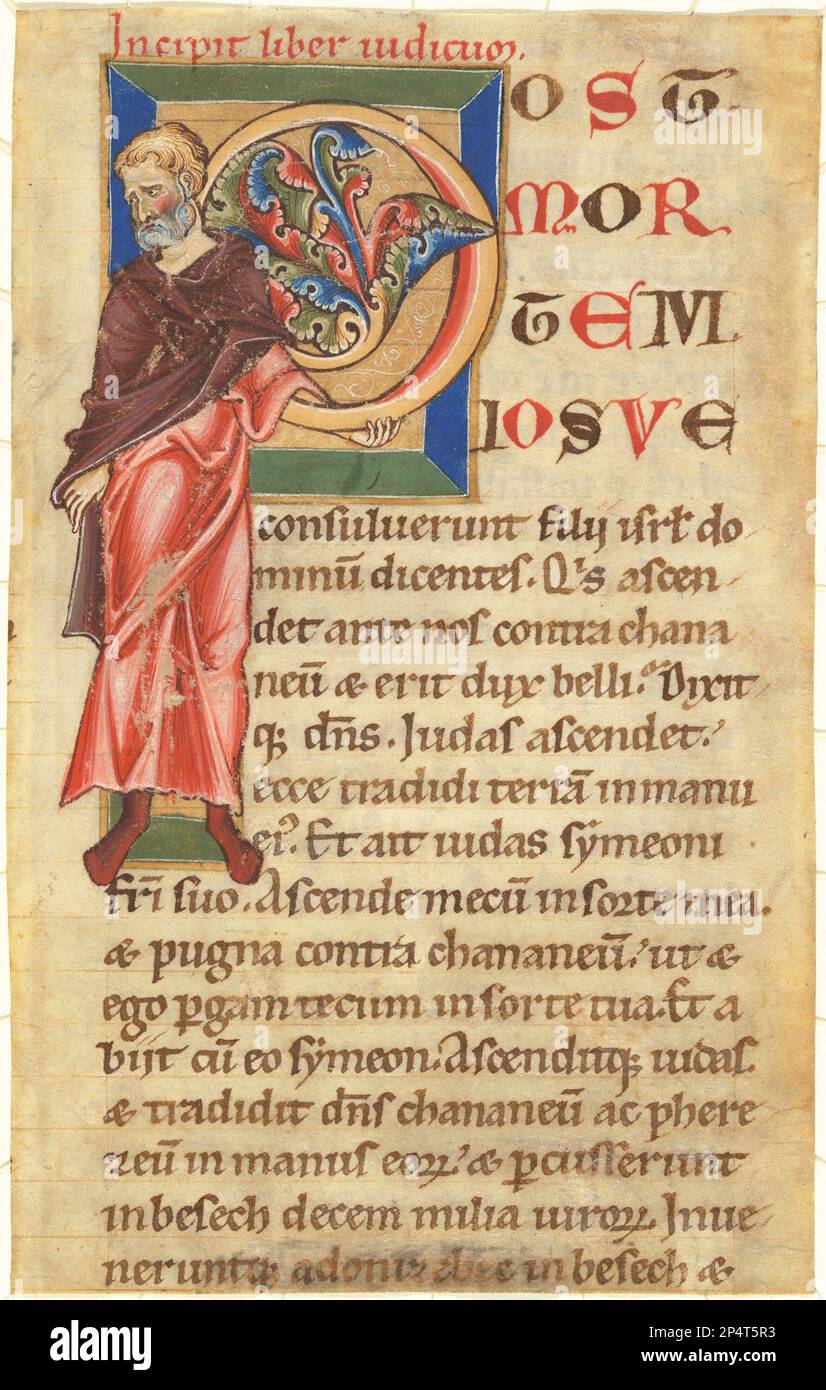 Incipit liber iudicum.
POST
MOR
TEM
IOSVE
consuluerunt filij isrl do
minū dicentes. Qis ascen
det ante nos contra chana
neū & erit dux belli. Dixit
q; dn̄s. Iudas ascendet.
ecce tradidi terrā in manu
ei9. Et ait iudas sẏmeoni
frī suo. Ascende mecū in sorte mea.
& pugna contra chananeū. ut &
ego ꝑgam tecum in sorte tua. Et a
biit cū eo sẏmeon. Ascenditq; iudas.
& tradidit dn̄s chananeū ac phere
zeū in manus eoꝝ. & ꝑcusserunt
in besech decem milia uiroꝝ. Inue
neruntq; adoni in besech &
alamy
Image ID: 2P4T5R3
www.alamy.com